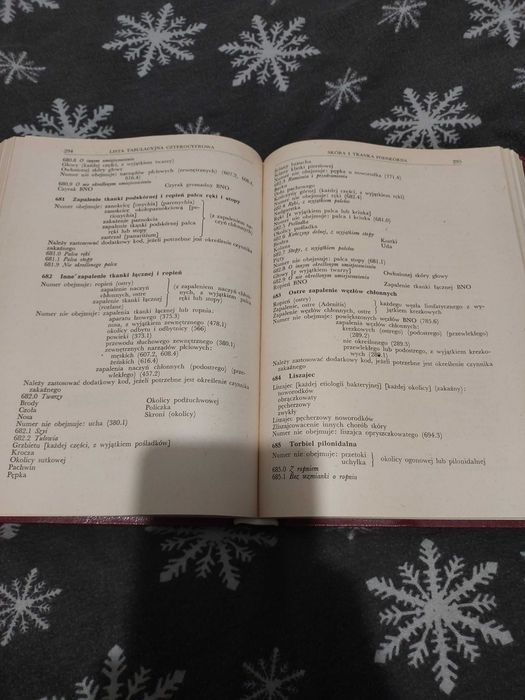 294 LISTA TABULACYJNA CZTEROCYFROWA
680.8 O innym umiejscowieniu
Głowy (każdej części, z wyjątkiem twarzy)
Owłosionej skóry głowy
Numer nie obejmuje: narządów płciowych (zewnętrznych) (607.2, 608.4,
616.4)
680.9 O nie określonym umiejscowieniu
Czyrak BNO Czyrak gromadny BNO
681 Zapalenie tkanki podskórnej i ropień palca ręki i stopy
Numer obejmuje: zanokcicę [onychia] [paronychia]
zakażenie paznokcia
zapalenie tkanki podskórnej palca
ręki lub stopy
zastrzał [panaritium]
Należy zastosować dodatkowy kod, jeżeli potrzebne jest określenie czynnika
zakaźnego
681.0 Palca ręki
681.1 Palca stopy
681.9 Nie określonego palca
682 Inne zapalenie tkanki łącznej i ropień
Numer obejmuje: ropień (ostry)
zapalenie naczyń
chłonnych, ostre
zapalenie tkanki łącznej
(rozlane)
(z zapaleniem naczyń chłon-
nych, z wyjątkiem palca
ręki lub stopy)
Numer nie obejmuje: zapalenia tkanki łącznej lub ropnia:
aparatu łzowego (375.3)
nosa, z wyjątkiem zewnętrznego (478.1)
okolicy odbytu i odbytnicy (566)
powieki (373.1)
przewodu słuchowego zewnętrznego (380.1)
zewnętrznych narządów płciowych:
męskich (607.2, 608.4)
żeńskich (616.4)
zapalenia naczyń chłonnych (podostrego) (prze-
wlekłego) (457.2)
Należy zastosować dodatkowy kod, jeżeli potrzebne jest określenie czynnika
zakaźnego
682.0 Twarzy
Brody Okolicy podżuchwowej
Czoła Policzka
Nosa Skroni (okolicy)
Numer nie obejmuje: ucha (380.1)
682.1 Szyi
682.2 Tułowia
Grzbietu [każdej części, z wyjątkiem pośladków]
Krocza
Okolicy sutkowej
Pachwin
Pępka
SKÓRA I TKANKA PODSKÓRNA 295
Ściany brzucha
Ściany klatki piersiowej
Numer nie obejmuje: pępka u noworodka (771.4)
682.3 Ramienia i przedramienia
Numer nie obejmuje: palca i kciuka (681.0)
682.5 Pośladka
Okolicy pośladka
682.6 Kończyny dolnej, z wyjątkiem stopy
Biodra Kostki
Kolana Uda
682.7 Stopy, z wyjątkiem palców
Pięty
Numer nie obejmuje: palca stopy (681.1)
682.8 O innym określonym umiejscowieniu
Głowy [z wyjątkiem twarzy] Owłosionej skóry głowy
682.9 O nie określonym umiejscowieniu
Ropień BNO Zapalenie tkanki łącznej BNO
683 Ostre zapalenie węzłów chłonnych
Ropień (ostry)
Zapalenie węzłów chłonnych, ostre (Adenitis)
każdego węzła limfatycznego z wy-
jątkiem krezkowych
Numer nie obejmuje: powiększonych węzłów BNO (785.6)
zapalenia węzłów chłonnych:
krezkowych (ostrego) (podostrego) (przewlekłego)
(289.2)
nie określonego (289.3)
przewlekłego lub podostrego, z wyjątkiem krezko-
wych (289.1)
Należy zastosować dodatkowy kod, jeżeli potrzebne jest określenie czynnika
zakaźnego
684 Liszajec
Liszajec [każdej etiologii bakteryjnej] [każdej okolicy] (zakaźny):
noworodków
obrączkowaty
pęcherzowy
zwykły
Liszajec pęcherzowy noworodków
Zliszajcowacenie innych chorób skóry
Numer nie obejmuje: liszajca opryszczkowatego (694.3)
685 Torbiel pilonidalna
Numer nie obejmuje: przetoki
uchyłka
okolicy ogonowej lub pilonidalnej
685.0 Z ropniem
685.1 Bez wzmianki o ropniu